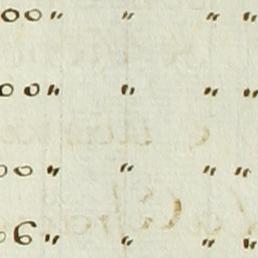 00 " " " "
00 " " " "
00 " " " "
06 " " " "